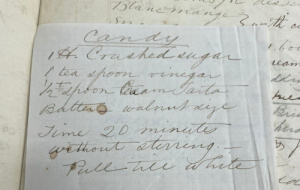 Blanc mange
Candy
1 lb. Crushed sugar
1 tea spoon vinegar
1/2 spoon Cream tarta
Butter walnut size
Time 20 minutes
without stirring –
Pull till white